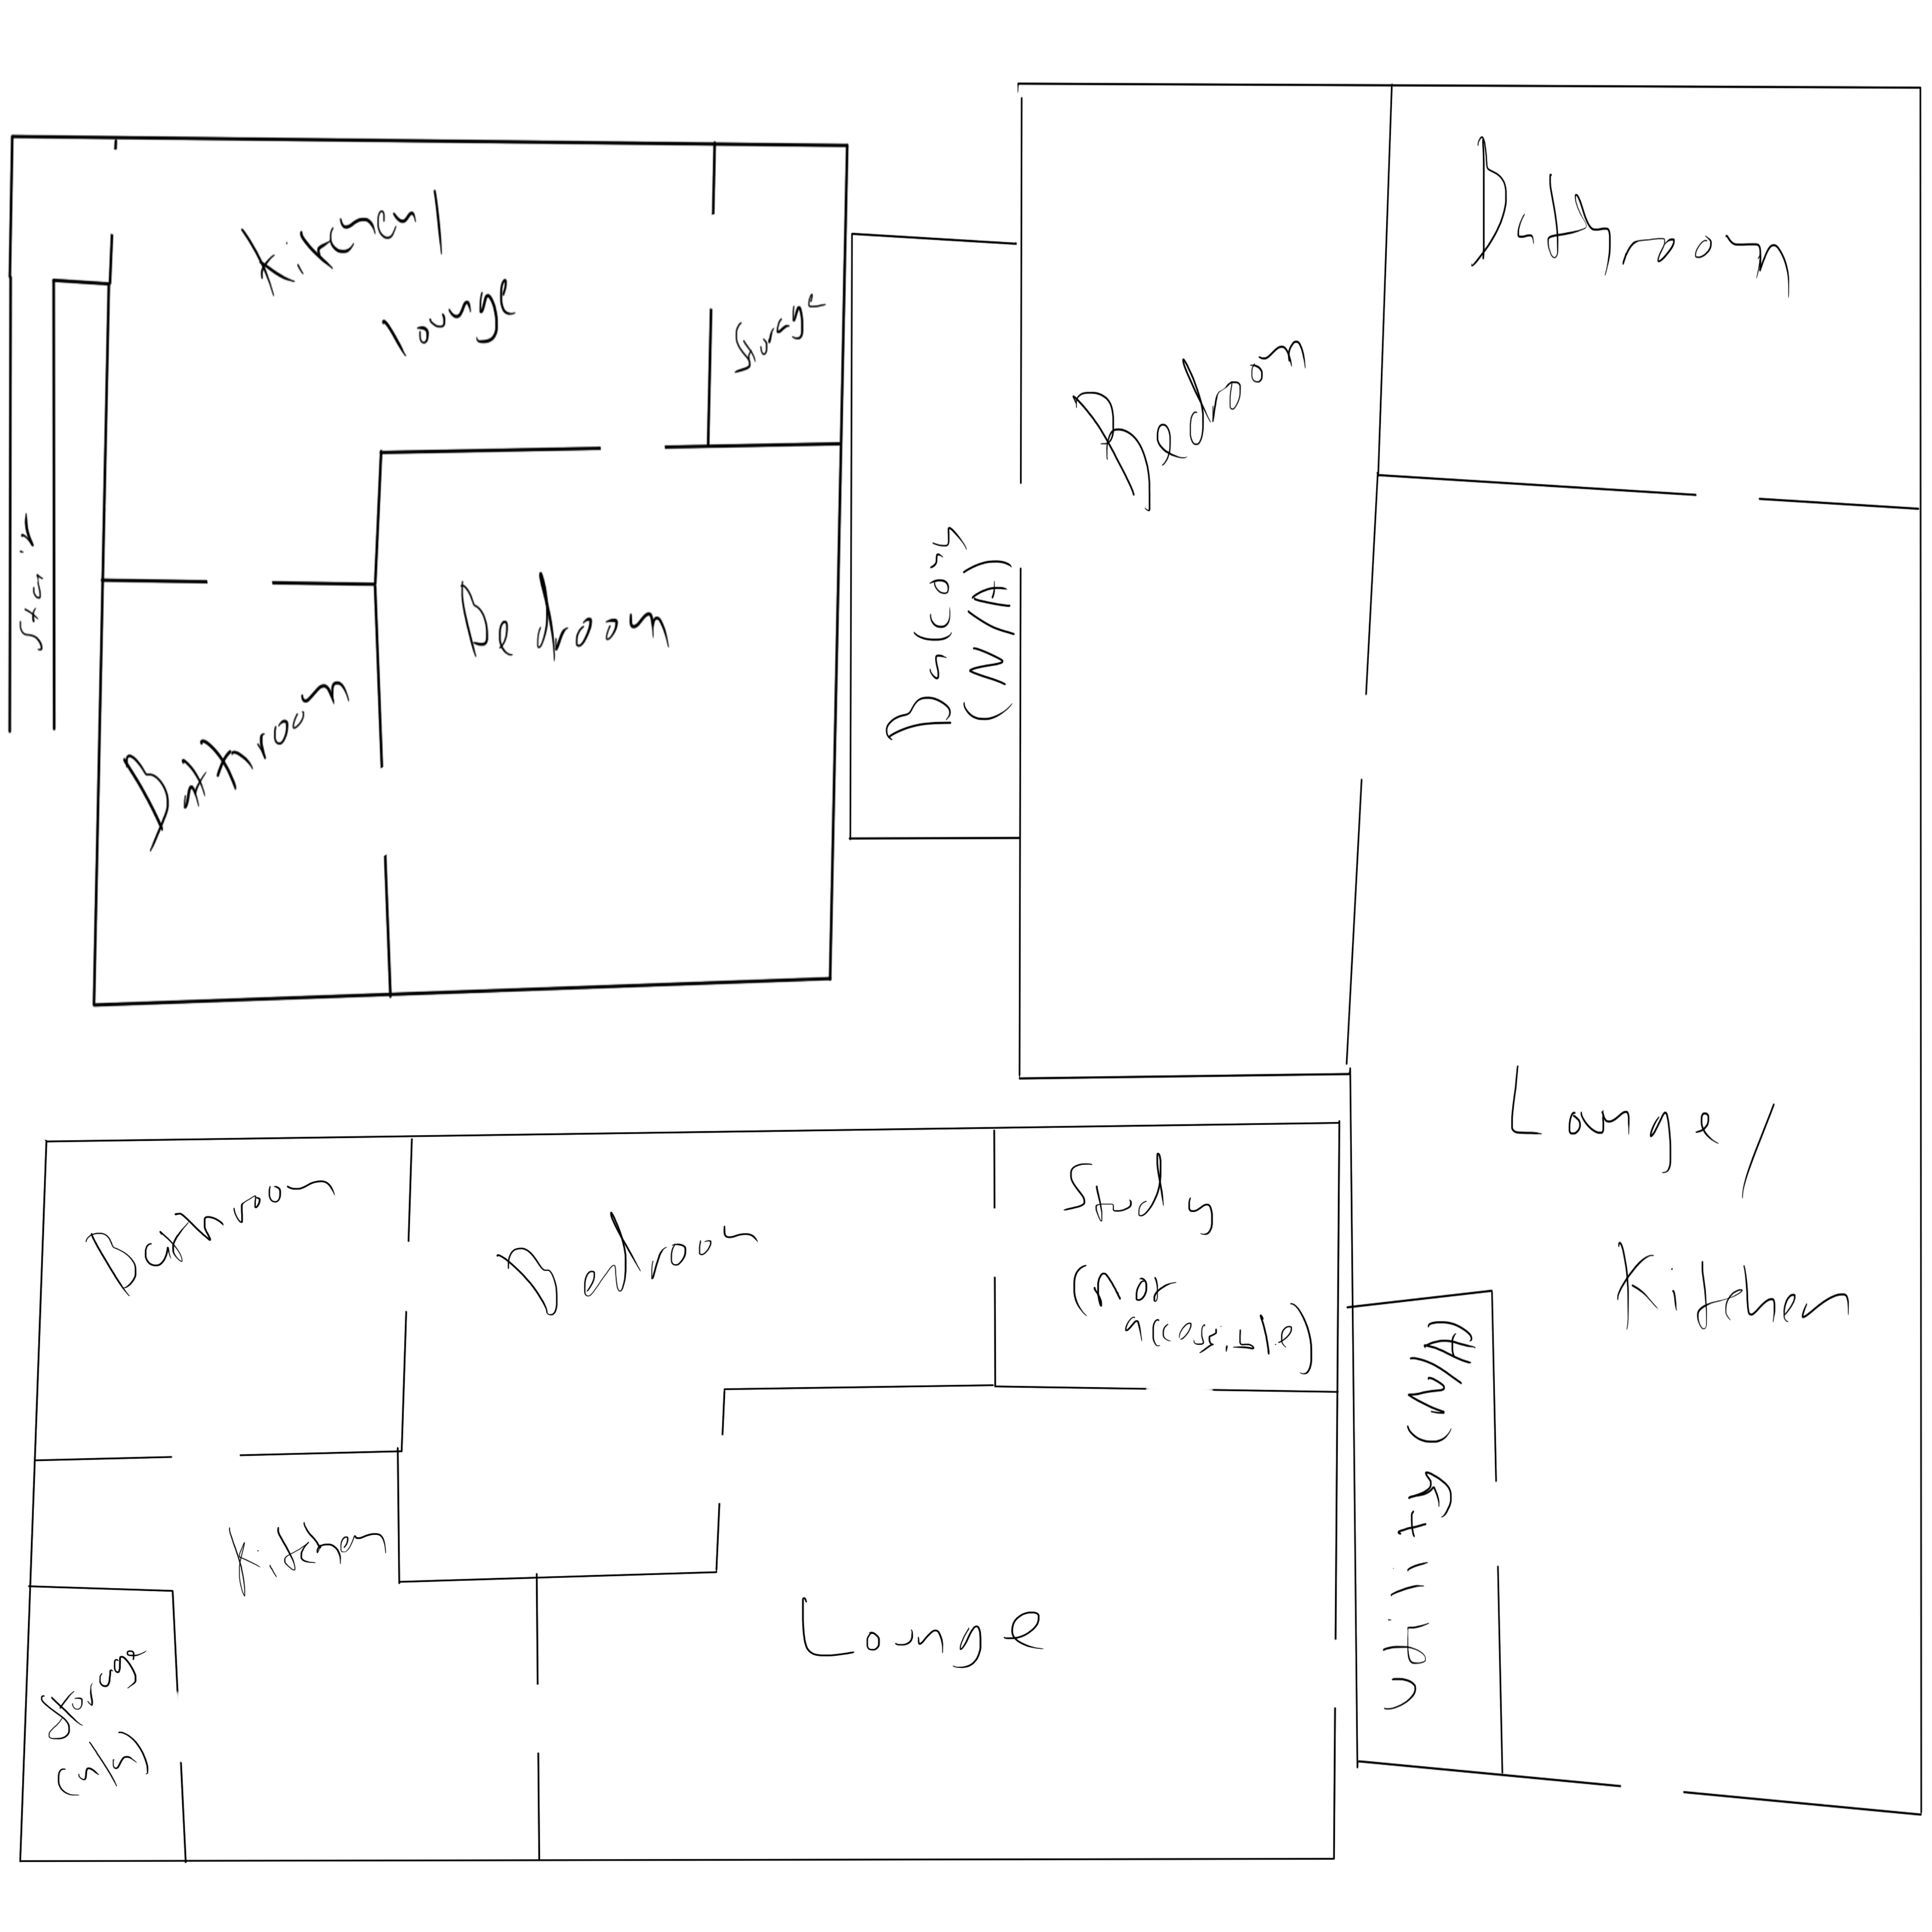 Kitchen/
lounge
Storage
Stair
Bedroom
Bathroom
Balcony
(N/A)
Bedroom
Bathroom
Lounge/
Kitchen
Utility (N/A)
Bathroom
Bedroom
Study
(not
accessible)
Kitchen
Storage
(n/a)
Lounge